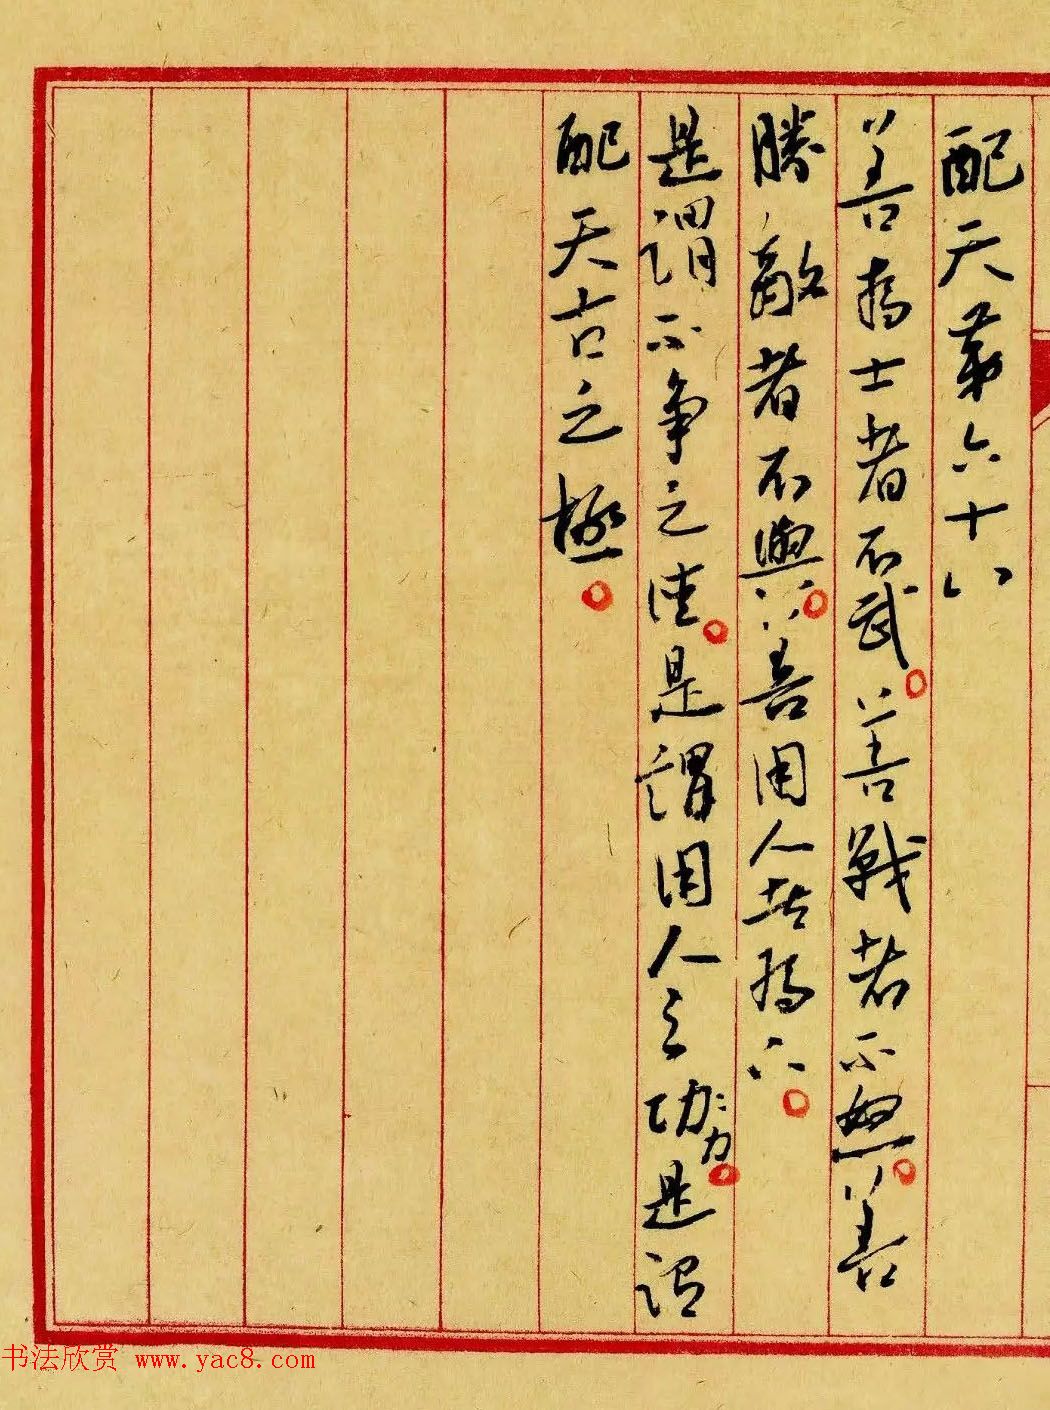 配天第六十八
善為士者不武。善戰者不怒。善
勝敵者不與。善用人者為下。
是謂不爭之德。是謂用人之功力。是謂
配天古之極。
书法欣赏 www.yac8.com